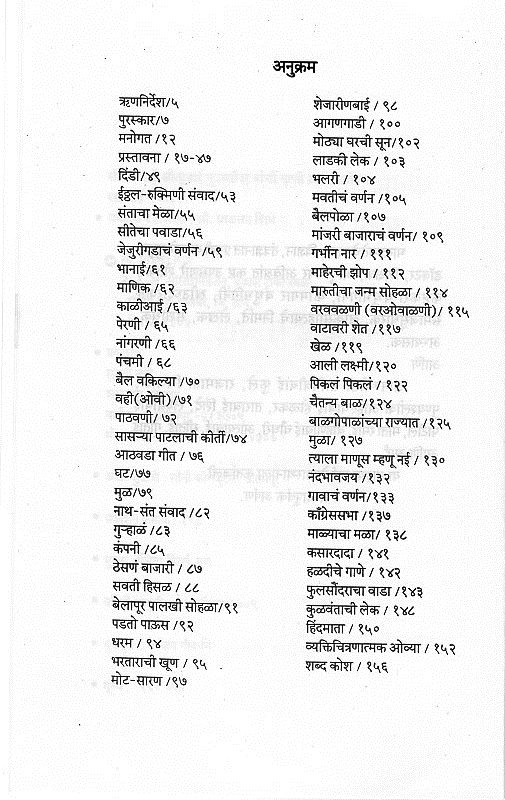 अनुक्रम
ऋणनिर्देश/५
पुरस्कार/७
मनोगत /१२
प्रस्तावना / १७-४७
दिंडी/४९
ईठ्ठल-रुक्मिणी संवाद/५३
संताचा मेळा/५५
सीतेचा पवाडा/५६
जेजुरीगडाचं वर्णन /५९
भानाई/६१
माणिक /६२
काळीआई /६३
पेरणी / ६५
नांगरणी /६६
पंचमी / ६८
बैल वकिल्या /७०
वही(ओवी)/७१
पाठवणी/ ७२
सासऱ्या पाटलाची कीर्ती/७४
आठवडा गीत / ७६
घट/७७
मुळ/७९
नाथ-संत संवाद /८२
गुऱ्हाळं /८३
कंपनी /८५
ठेसणं बाजारी / ८७
सवती हिसळ / ८८
बेलापूर पालखी सोहळा/९१
पडतो पाऊस /९२
धरम / ९४
भरताराची खूण / ९५
मोट-सारण /९७
शेजारीणबाई / ९८
आगणगाडी / १००
मोठ्या घरची सून/१०२
लाडकी लेक / १०३
भलरी / १०४
मवतीचं वर्णन /१०५
बैलपोळा /१०७
मांजरी बाजाराचं वर्णन/ १०९
गर्भीन नार / १११
माहेरची झोप / ११२
मारुतीचा जन्म सोहळा / ११४
वरववळणी (वरओवाळणी)/ ११५
वाटावरी शेत /११७
खेळ /११९
आली लक्ष्मी/१२०
पिकलं पिकलं / १२२
चैतन्य बाळ/१२४
बाळगोपाळांच्या राज्यात /१२५
मुळा/ १२७
त्याला माणूस म्हणू नई / १३०
नंदभावजय /१३२
गावाचं वर्णन/१३३
काँग्रेससभा /१३७
माळ्याचा मळा/ १३८
कसारदादा / १४१
हळदीचे गाणे / १४२
फुलसौंदराचा वाडा /१४३
कुळवंताची लेक / १४८
हिंदमाता / १५०
व्यक्तिचित्रणात्मक ओव्या / १५२
शब्द कोश / १५६